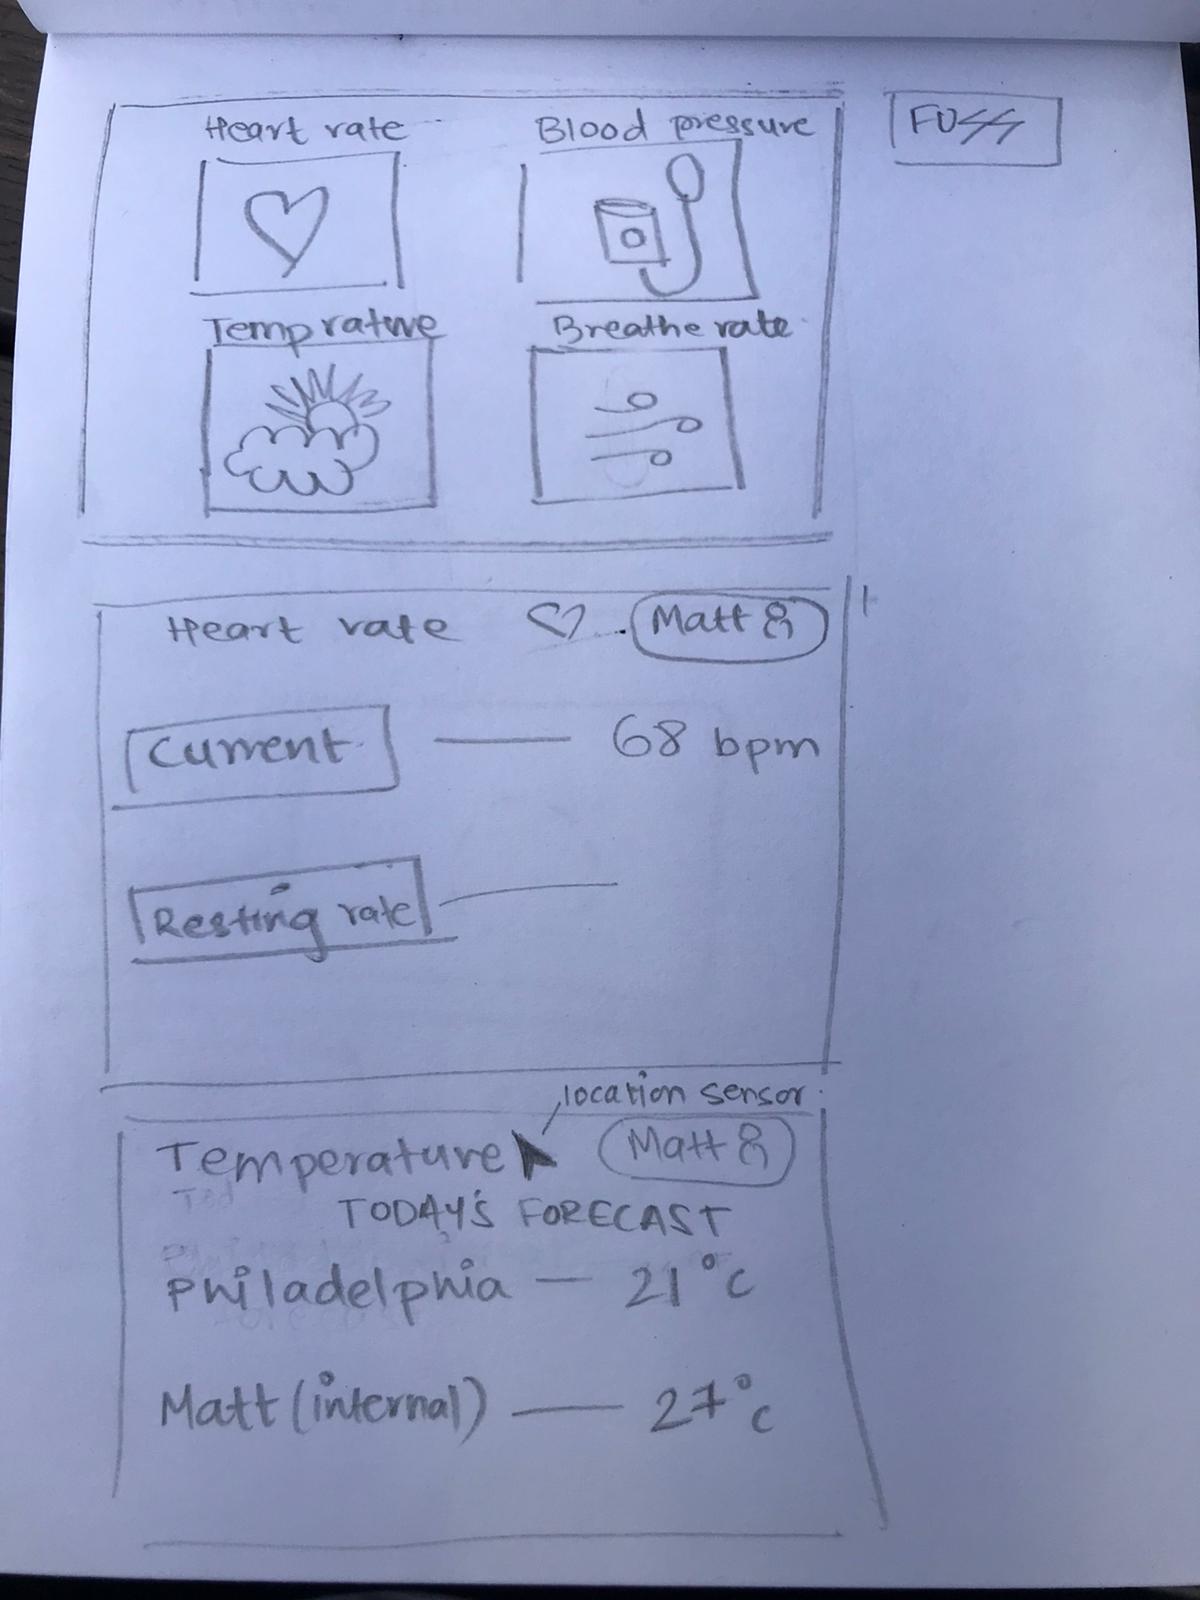 Heart rate Blood pressure
Temprature Breathe rate
Heart rate Matt
Current — 68 bpm
Resting rate
location sensor
Temperature Matt
TODAY'S FORECAST
Philadelphia — 21°C
Matt (internal) — 27°C